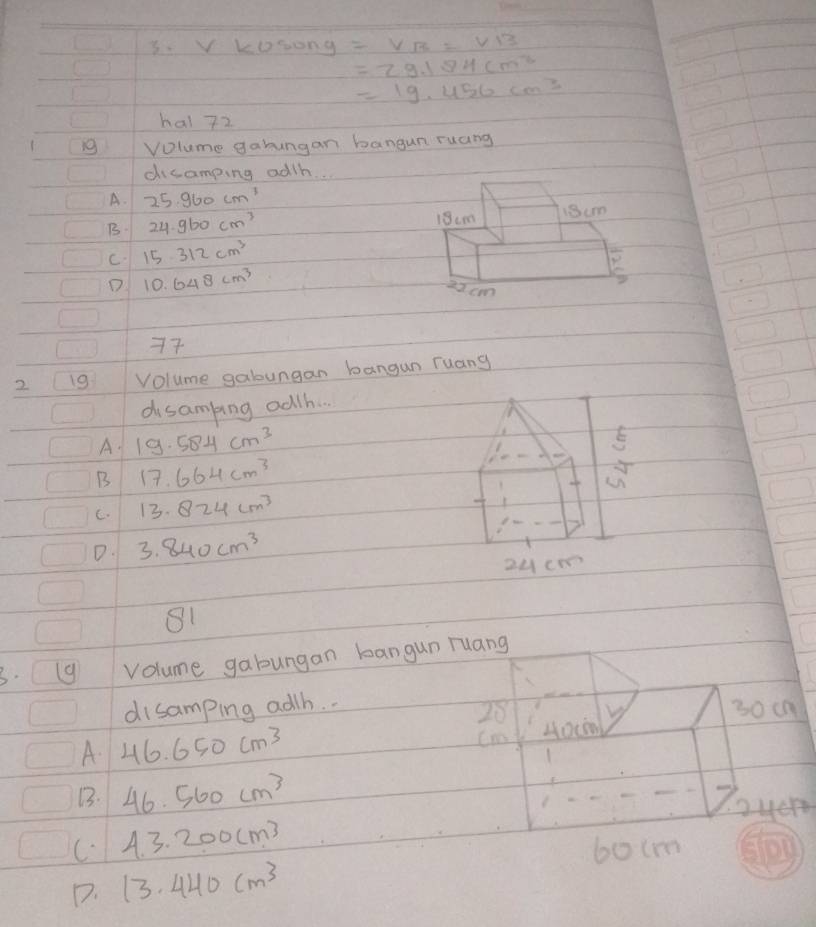 3. V kosong = VB = V13
= 29.184 cm³
= 19.456 cm³
hal 72
1 19 Volume gabungan bangun ruang
disamping adlh...
A. 25.960 cm³
B. 24.960 cm³
C. 15.312 cm³
D. 10.648 cm³
18cm
18cm
12cm
22cm
77
2 19 Volume gabungan bangun ruang
disamping adlh...
A. 19.584 cm³
B 17.664 cm³
C. 13.824 cm³
D. 3.840 cm³
54 cm
24 cm
81
3. 19 Volume gabungan bangun ruang
disamping adlh..
A. 46.650 cm³
B. 46.560 cm³
C. 43.200 cm³
D. 13.440 cm³
28 cm
40cm
30 cm
24cm
60 cm
SIDU